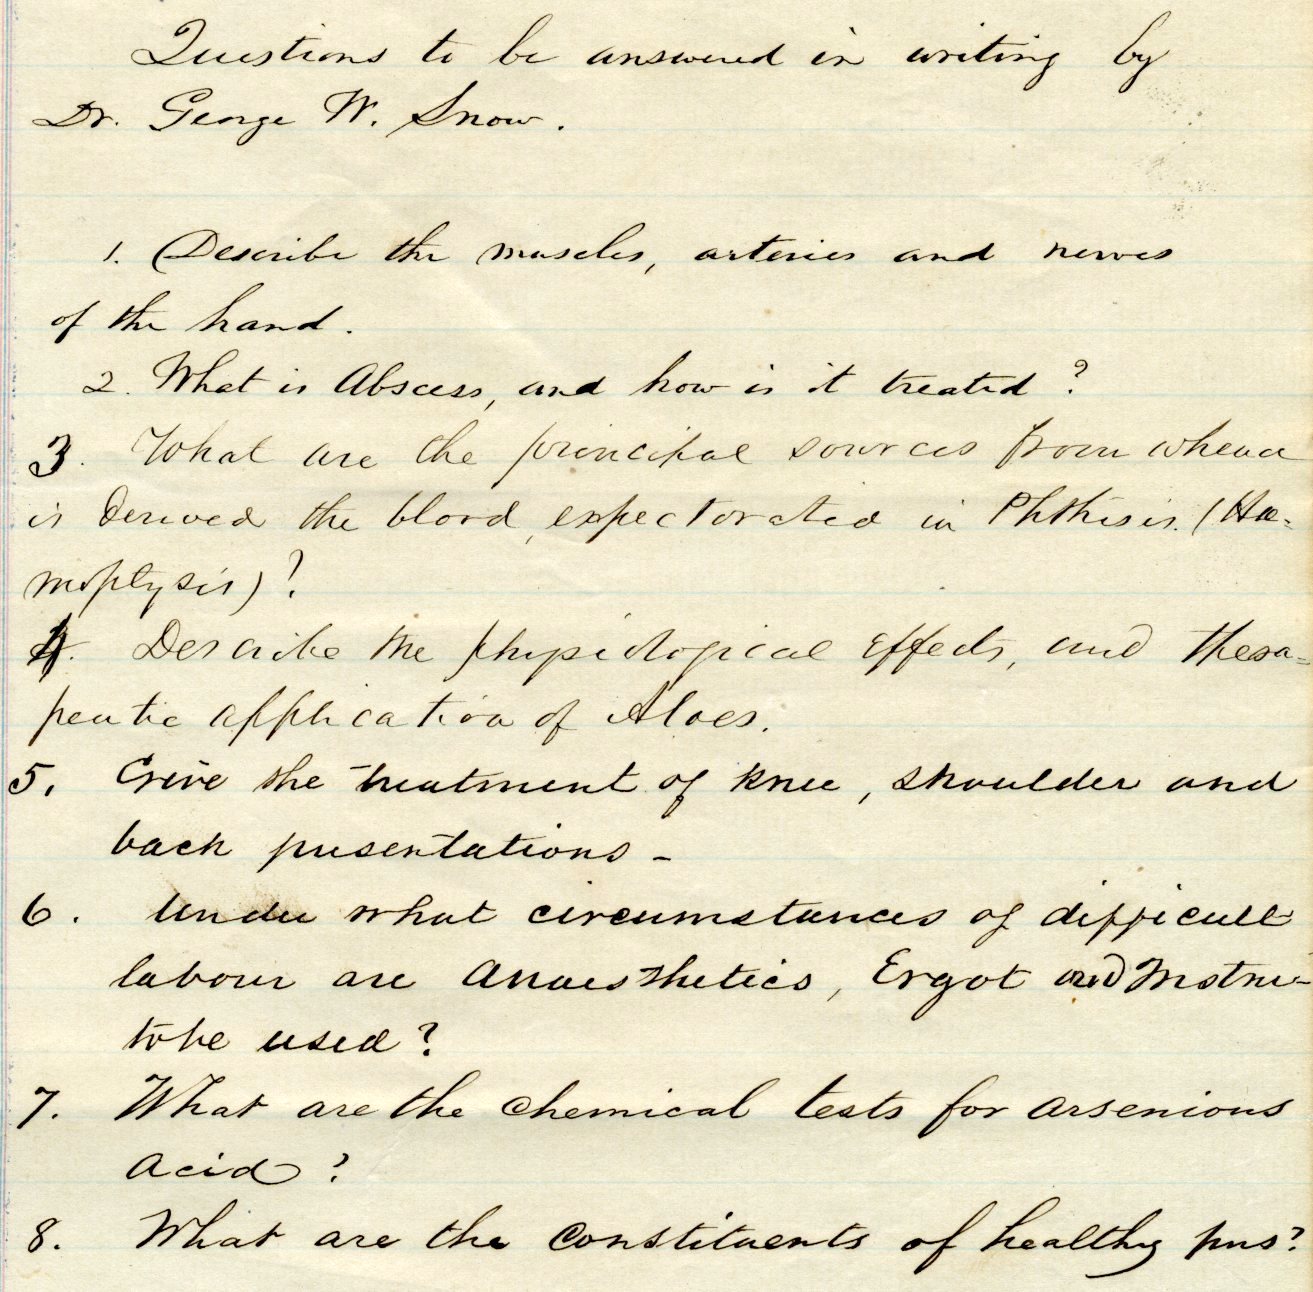 Questions to be answered in writing by
Dr. George W. Snow.
1. Describe the muscles, arteries and nerves
of the hand.
2. What is Abscess, and how is it treated?
3. What are the principal sources from whence
is derived the blood, expectorated in Phthisis. (Hae=
moptysis)?
4. Describe the physiological effects, and thera=
peutic application of Aloes.
5. Give the treatment of knee, shoulder and
back presentations -
6. Under what circumstances of difficult
labour are Anaesthetics, Ergot and Instru-
to be used?
7. What are the chemical tests for arsenious
acid?
8. What are the constituents of healthy pus?